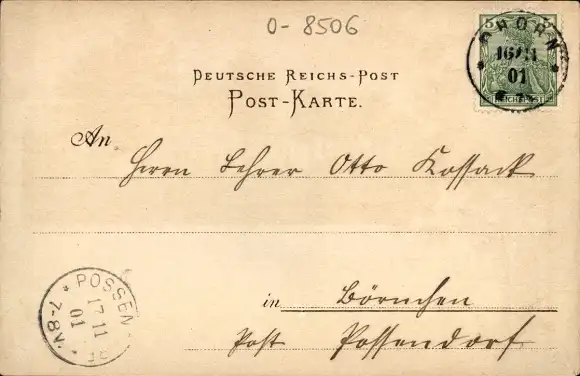 0-8506
5
THORN
16/11
01
REICHSPOST
DEUTSCHE REICHS-POST
POST-KARTE.
An
Herrn Lehrer Otto Kossack
in Börnchen
Post Possendorf
POSSEN RF
17 11
01
7-8N